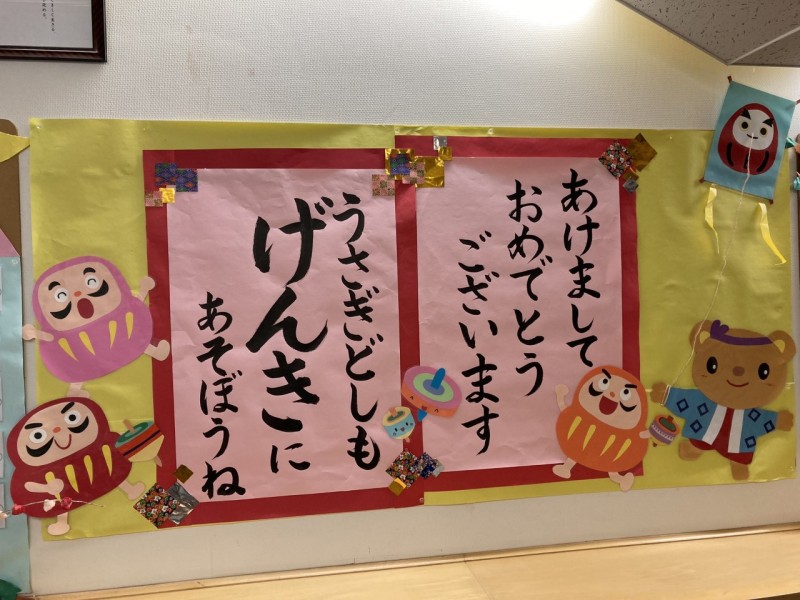 あけまして
おめでとう
ございます
うさぎどしも
げんきに
あそぼうね